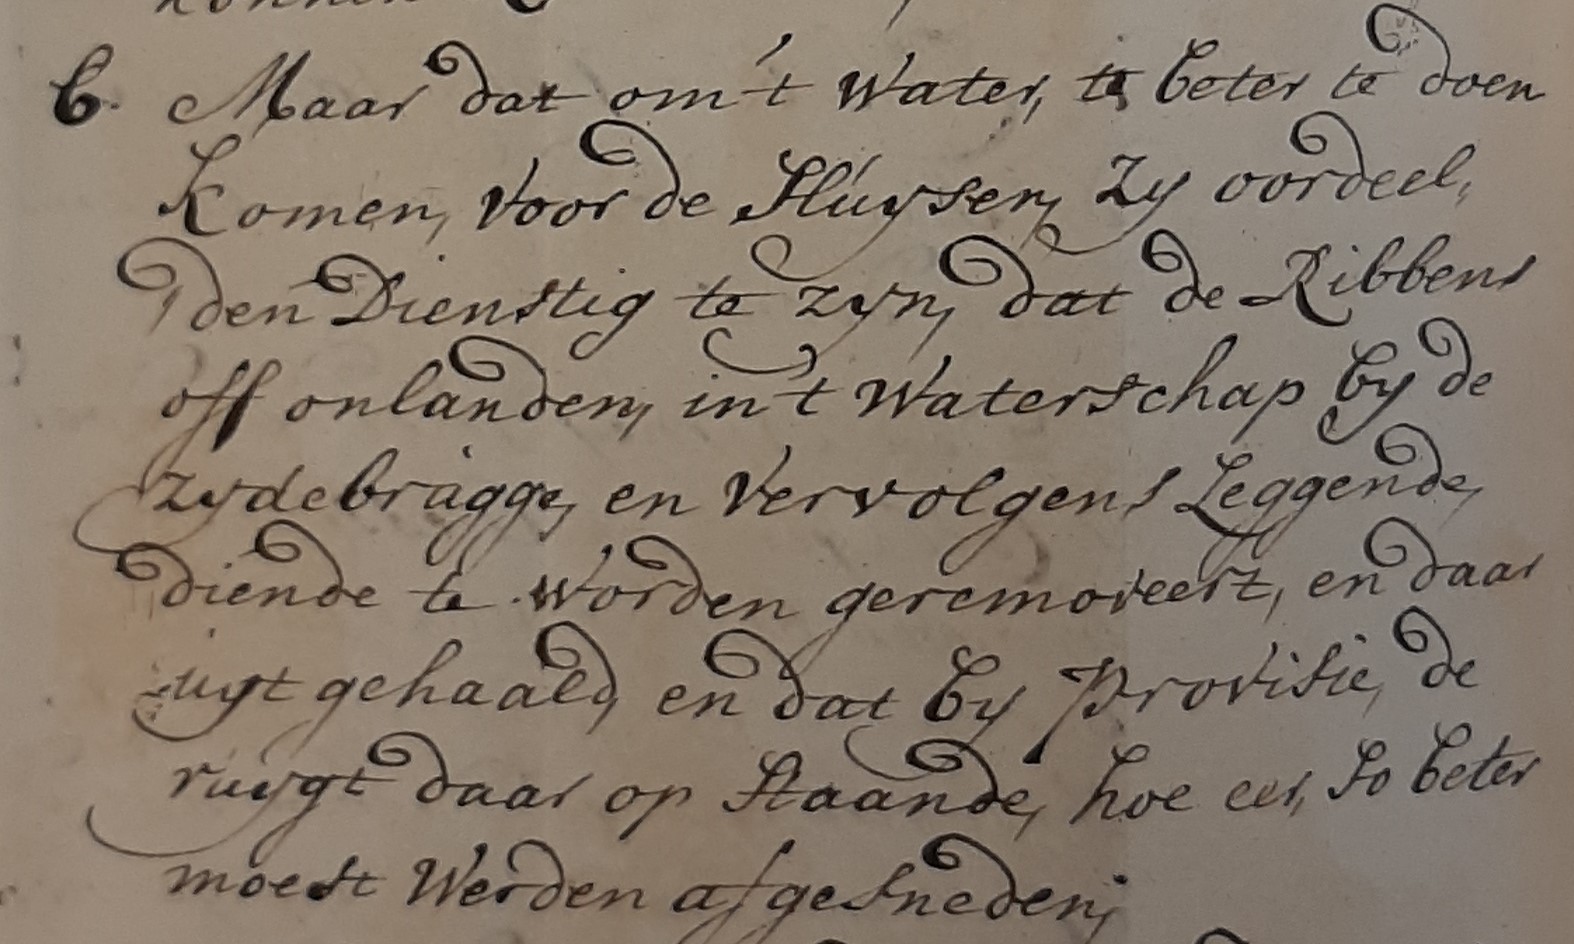 6. Maar dat om 't Water, te beter te doen
Komen, voor de Sluysen, zy oordeel,
den Dienstig te zyn, dat de Ribbens
off onlanden, in 't Waterschap by de
zydebrugge, en vervolgens Leggende,
diende te worden geremoveert, en daar
uyt gehaald, en dat by Provisie, de
ruygt daar op staande, hoe eer, so beter
moest Werden afgesneden;